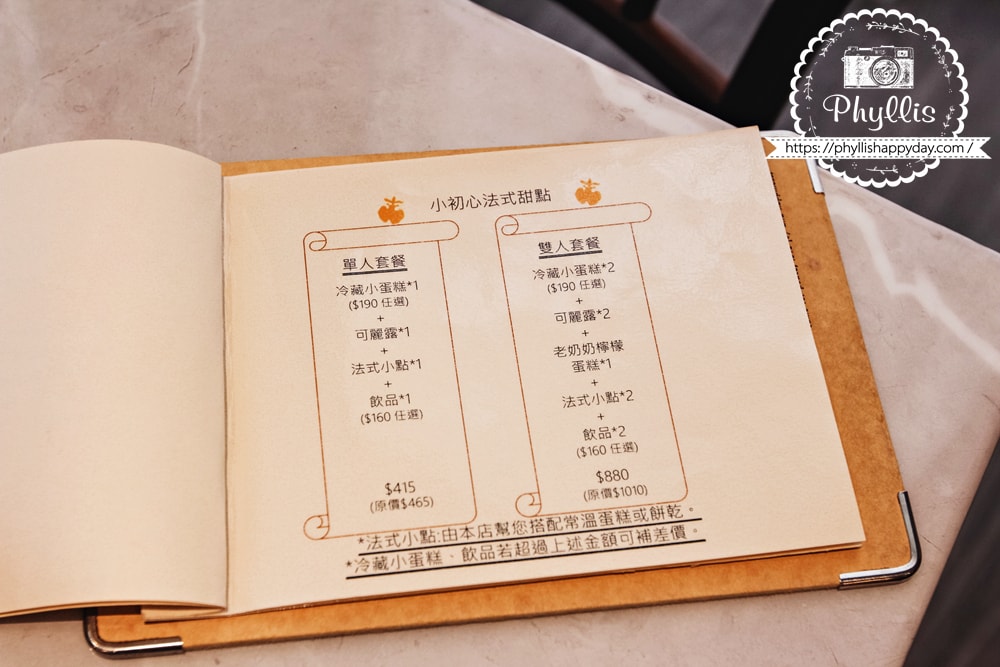 Phyllis
https://phyllishappyday.com/
小初心法式甜點
單人套餐
冷藏小蛋糕*1
($190 任選)
+
可麗露*1
+
法式小點*1
+
飲品*1
($160 任選)
$415
(原價$465)
雙人套餐
冷藏小蛋糕*2
($190 任選)
+
可麗露*2
+
老奶奶檸檬
蛋糕*1
+
法式小點*2
+
飲品*2
($160 任選)
$880
(原價$1010)
*法式小點:由本店幫您搭配常溫蛋糕或餅乾。
*冷藏小蛋糕、飲品若超過上述金額可補差價。